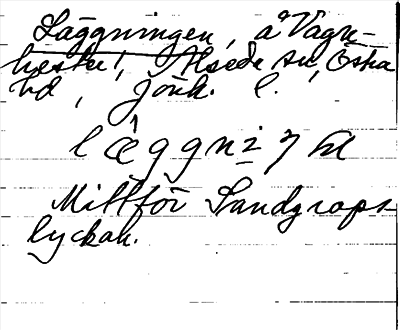 Läggningen, å Vagn-
hester, Alseda sn, Östra
hd, Jönk. l.
Mittför Sandgrops
lyckan.